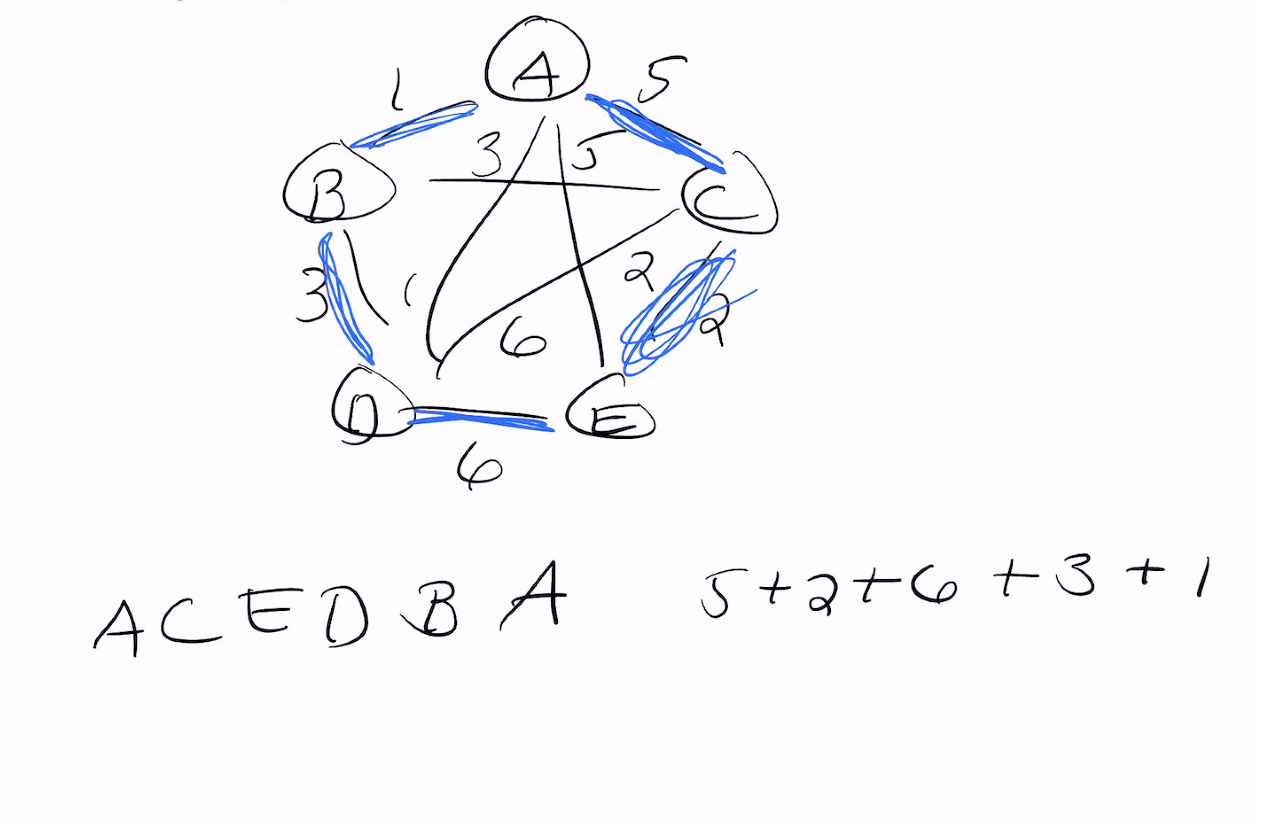 A
1
5
3
5
B
C
3
1
2
2
6
D
E
6
A C E D B A 5+2+6+3+1